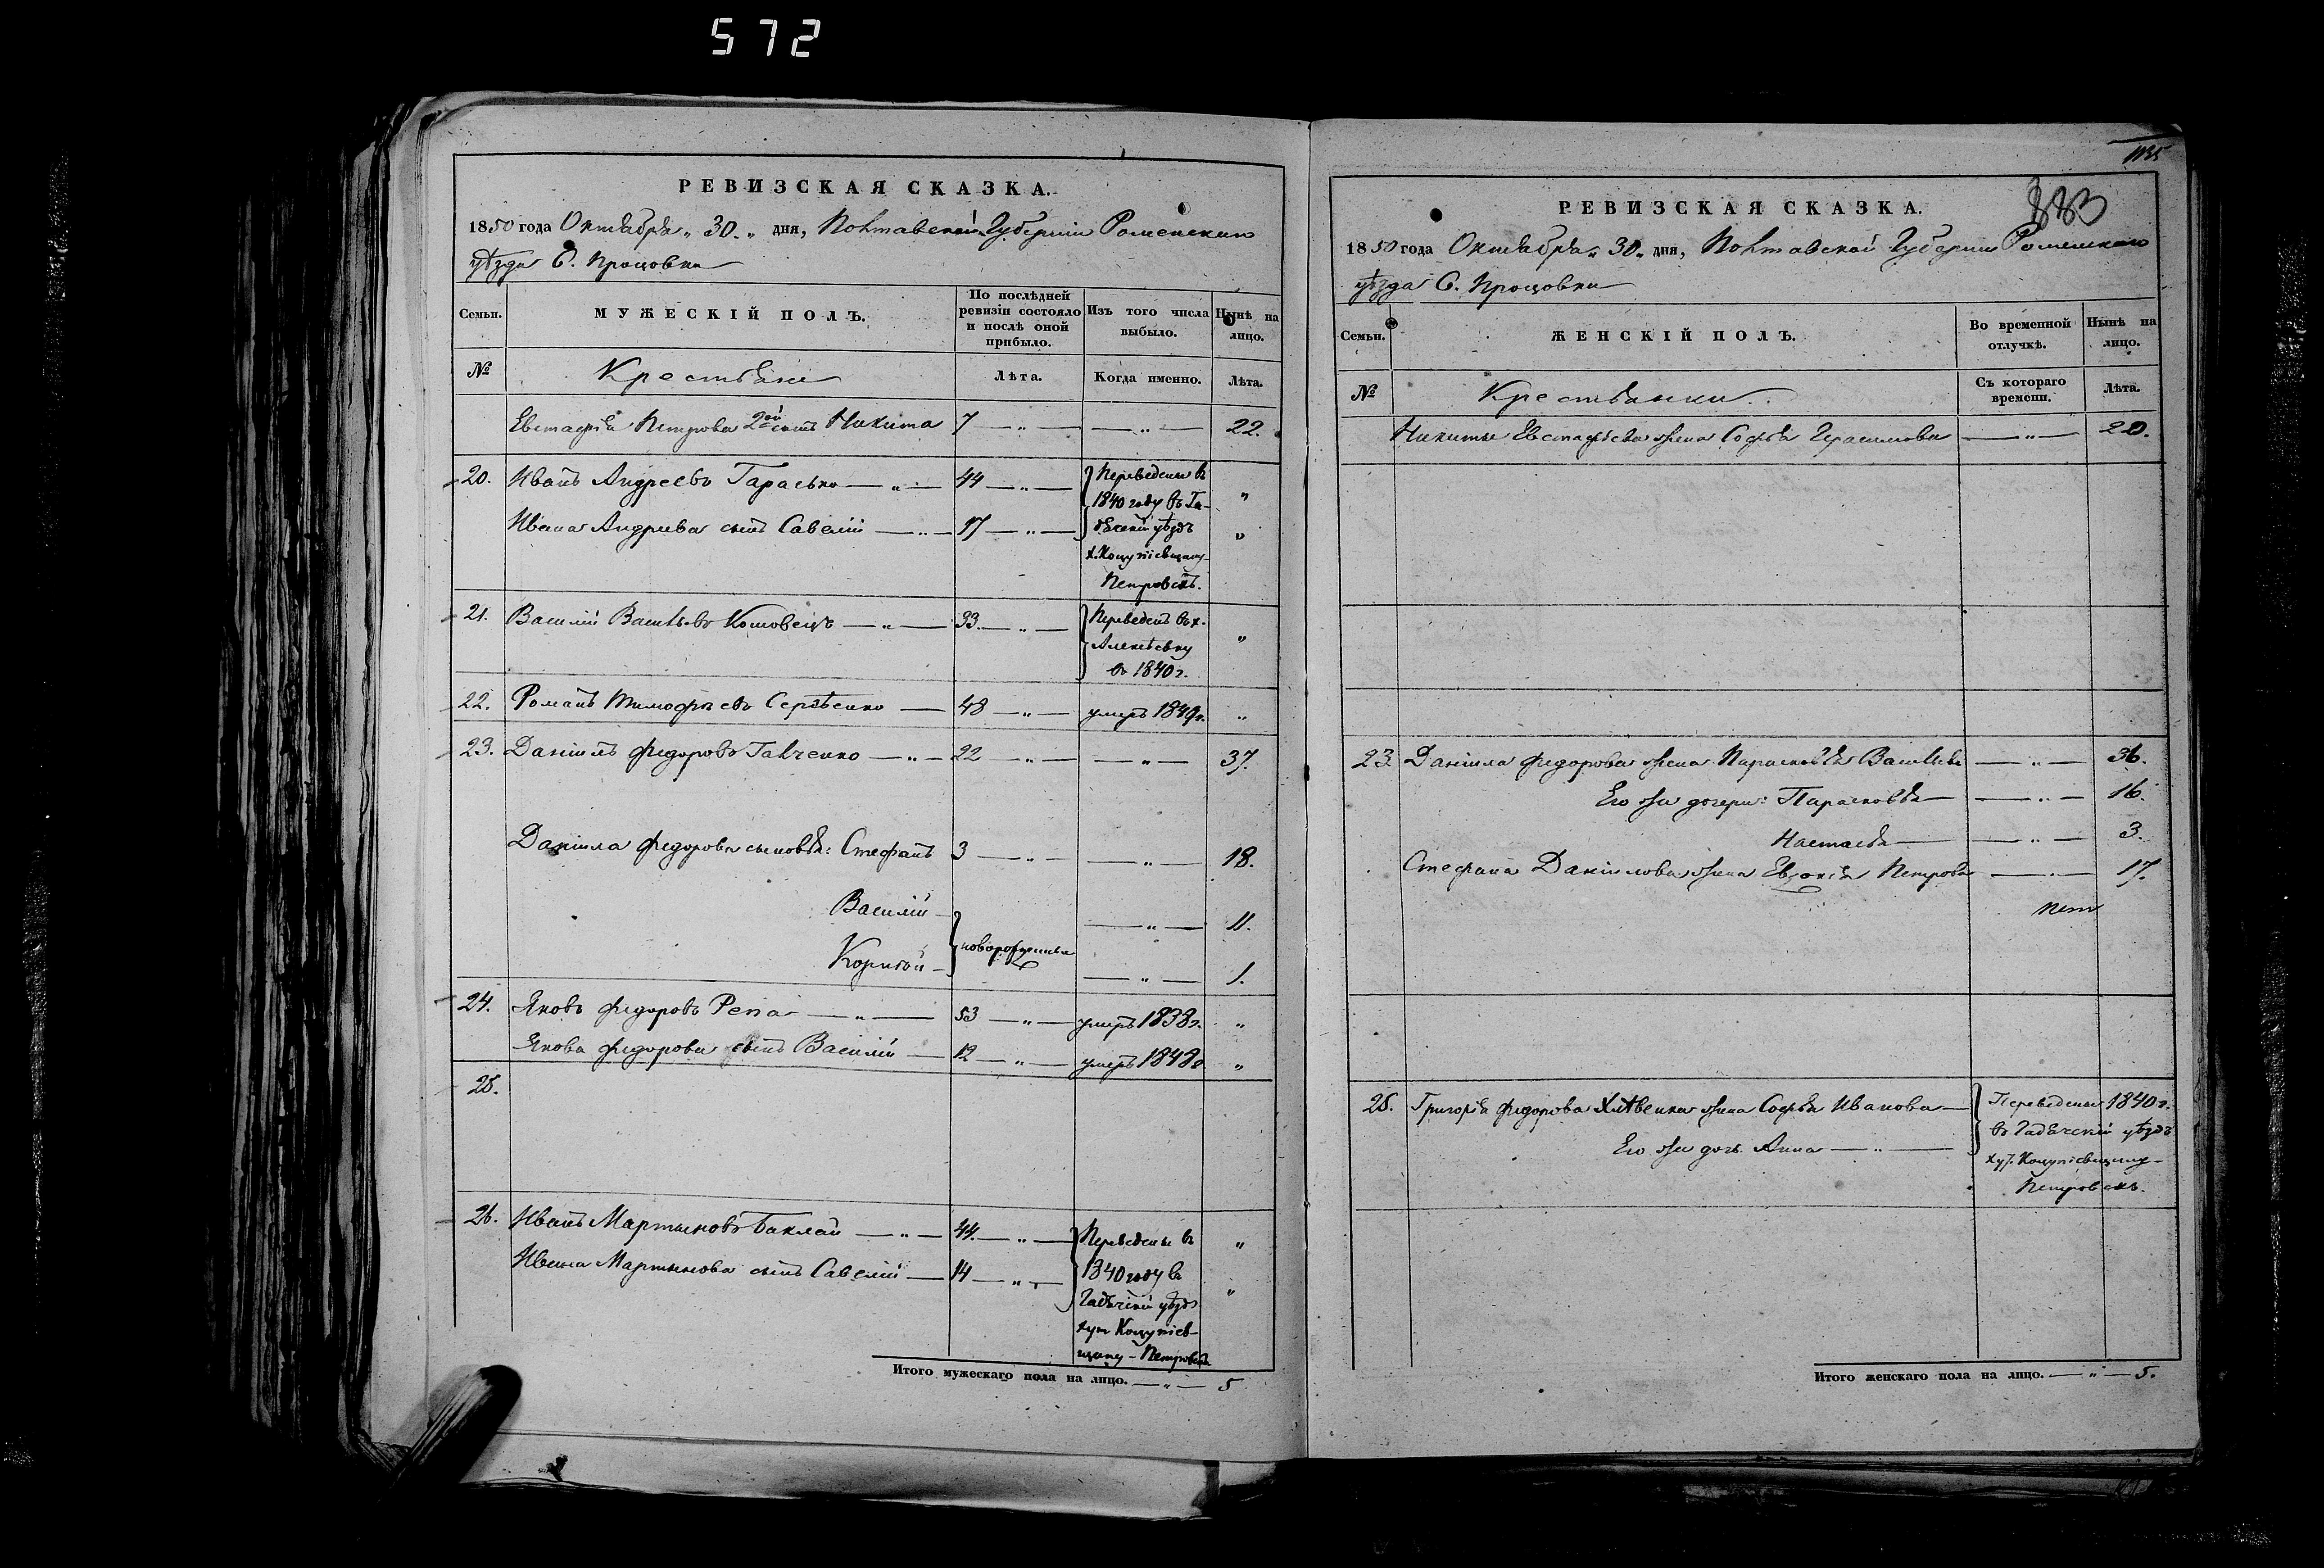 572
РЕВИЗСКАЯ СКАЗКА.
1850 года Октября „ 30 „ дня, Полтавской Губерніи Роменскаго
уѣзда С. Процовки
Семьи.
МУЖЕСКІЙ ПОЛЪ.
По послѣдней ревизіи состояло и послѣ оной прибыло.
Изъ того числа выбыло.
Нынѣ на лицо.
№
Крестьяне
Лѣта.
Когда именно.
Лѣта.
Евстафія Петрова 2ой сынъ Никита 7 — „ — — „ — 22.
20. Иванъ Андреевъ Гарасько — „ — 44 — „ — Переведены въ „
1840 году въ Га-
Ивана Андреева сынъ Савелій — „ — 17 — „ — дячскій уѣздъ „
х.
Петровскъ.
21. Василій Васильевъ — „ — 33. — „ — Переведенъ въ х. „
Алексѣевку
въ 1840 г.
22. Романъ Тимофѣевъ Сергѣенко — 48 — „ — умеръ 1849 г. „
23. Даніилъ Федоровъ Галченко — „ — 22 — „ — — „ — 37.
Даніила Федорова сыновья: Стефанъ 3 — „ — — „ — 18.
Василій — новорожденные — „ — 11.
Корнѣй — — „ — 1.
24. Яковъ Федоровъ Репа — „ — 53 — „ — умеръ 1838 г. „
Якова Федорова сынъ Василій — 12 — „ — умеръ 1848 г. „
25.
26. Иванъ Мартыновъ Баклай — „ — 44. — „ — Переведены въ „
Ивана Мартынова сынъ Савелій — 14 — „ — 1840 году въ „
Гадячскій уѣздъ
хут
Петровскъ
Итого мужескаго пола на лицо. — „ — 5
1135
383
РЕВИЗСКАЯ СКАЗКА.
1850 года Октября „ 30 „ дня, Полтавской Губерніи Роменскаго
уѣзда С. Процовки
Семьи.
ЖЕНСКІЙ ПОЛЪ.
Во временной отлучкѣ.
Нынѣ на лицо.
№
Крестьянки
Съ котораго времени.
Лѣта.
Никиты Евстафіева жена Софья Герасимова — „ — 20.
23. Даніила Федорова жена Парасковья Васильева — „ — 36.
Его же дочери: Парасковья — — „ — 16.
Настасья — — „ — 3.
Стефана Даніилова жена Евдокія Петрова — „ — 17.
25. Григорія Федорова жена Софья Иванова — Переведены 1840 г.
въ Гадячскій уѣздъ
Его же дочь Анна — „ —
хут.
Петровскъ.
Итого женскаго пола на лицо. — „ — 5.